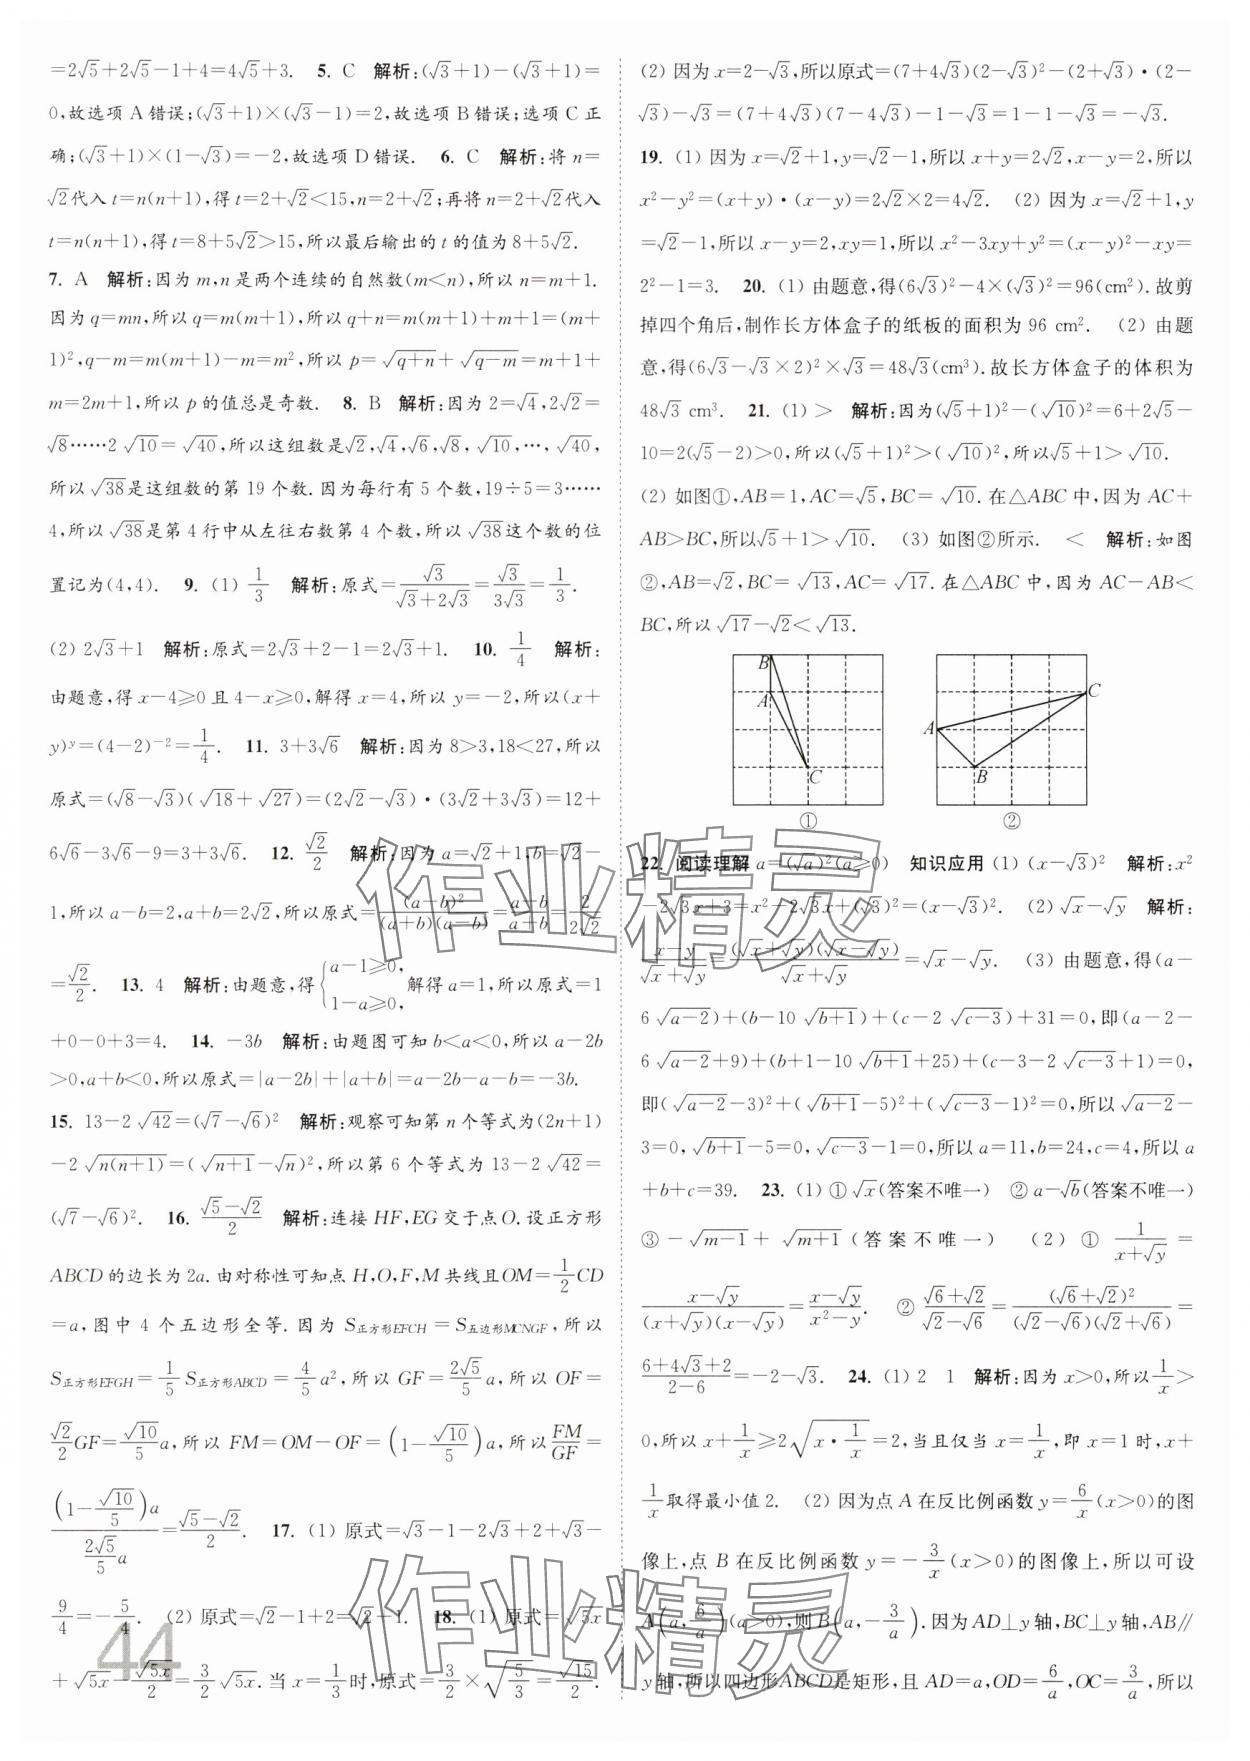 =2√5+2√5−1+4=4√5+3.  5. C  解析:(√3+1)−(√3+1)=
0,故选项 A 错误;(√3+1)×(√3−1)=2,故选项 B 错误;选项 C 正
确;(√3+1)×(1−√3)=−2,故选项 D 错误.  6. C  解析:将 n=
√2代入 t=n(n+1),得 t=2+√2<15,n=2+√2;再将 n=2+√2代入
t=n(n+1),得 t=8+5√2>15,所以最后输出的 t 的值为 8+5√2.
7. A  解析:因为 m,n 是两个连续的自然数(m<n),所以 n=m+1.
因为 q=mn,所以 q=m(m+1),所以 q+n=m(m+1)+m+1=(m+
1)²,q−m=m(m+1)−m=m²,所以 p=√(q+n)+√(q−m)=m+1+
m=2m+1,所以 p 的值总是奇数.  8. B  解析:因为 2=√4,2√2=
√8……2√10=√40,所以这组数是√2,√4,√6,√8,√10,…,√40,
所以√38是这组数的第 19 个数.因为每行有 5 个数,19÷5=3……
4,所以√38是第 4 行中从左往右数第 4 个数,所以√38这个数的位
置记为(4,4).  9. (1) 1/3  解析:原式=√3/(√3+2√3)=√3/(3√3)=1/3.
(2) 2√3+1  解析:原式=2√3+2−1=2√3+1.  10. 1/4  解析:
由题意,得 x−4≥0 且 4−x≥0,解得 x=4,所以 y=−2,所以(x+
y)^y=(4−2)⁻²=1/4.  11. 3+3√6  解析:因为 8>3,18<27,所以
原式=(√8−√3)(√18+√27)=(2√2−√3)·(3√2+3√3)=12+
6√6−3√6−9=3+3√6.  12. √2/2  解析:因为 a=√2+1,b=√2−
1,所以 a−b=2,a+b=2√2,所以原式=(a−b)²/((a+b)(a−b))=(a−b)/(a+b)=2/(2√2)
=√2/2.  13. 4  解析:由题意,得{a−1≥0, 1−a≥0, 解得 a=1,所以原式=1
+0−0+3=4.  14. −3b  解析:由题图可知 b<a<0,所以 a−2b
>0,a+b<0,所以原式=|a−2b|+|a+b|=a−2b−a−b=−3b.
15. 13−2√42=(√7−√6)²  解析:观察可知第 n 个等式为(2n+1)
−2√(n(n+1))=(√(n+1)−√n)²,所以第 6 个等式为 13−2√42=
(√7−√6)².  16. (√5−√2)/2  解析:连接 HF,EG 交于点 O.设正方形
ABCD 的边长为 2a.由对称性可知点 H,O,F,M 共线且OM=1/2 CD
=a,图中 4 个五边形全等.因为 S正方形EFCH=S五边形MCNGF,所以
S正方形EFGH=1/5 S正方形ABCD=4/5 a²,所以 GF=2√5/5 a,所以 OF=
√2/2 GF=√10/5 a,所以 FM=OM−OF=(1−√10/5)a,所以FM/GF=
(1−√10/5)a/(2√5/5 a)=(√5−√2)/2.  17. (1) 原式=√3−1−2√3+2+√3−
9/4=−5/4.  (2) 原式=√2−1+2=√2+1.  18. (1) 原式=√5x
+√5x−√5x/2=3/2 √5x.当 x=1/3时,原式=3/2×√(5/3)=√15/2.
44
(2) 因为 x=2−√3,所以原式=(7+4√3)(2−√3)²−(2+√3)·(2−
√3)−√3=(7+4√3)(7−4√3)−1−√3=1−1−√3=−√3.
19. (1) 因为 x=√2+1,y=√2−1,所以 x+y=2√2,x−y=2,所以
x²−y²=(x+y)·(x−y)=2√2×2=4√2.  (2) 因为 x=√2+1,y
=√2−1,所以 x−y=2,xy=1,所以 x²−3xy+y²=(x−y)²−xy=
2²−1=3.  20. (1) 由题意,得(6√3)²−4×(√3)²=96(cm²).故剪
掉四个角后,制作长方体盒子的纸板的面积为 96 cm².  (2) 由题
意,得(6√3−√3×2)²×√3=48√3(cm³).故长方体盒子的体积为
48√3 cm³.  21. (1) >  解析:因为(√5+1)²−(√10)²=6+2√5−
10=2(√5−2)>0,所以(√5+1)²>(√10)²,所以√5+1>√10.
(2) 如图①,AB=1,AC=√5,BC=√10.在△ABC 中,因为 AC+
AB>BC,所以√5+1>√10.  (3) 如图②所示.  <  解析:如图
②,AB=√2,BC=√13,AC=√17.在△ABC 中,因为 AC−AB<
BC,所以√17−√2<√13.
B
A
C
①
A
B
C
②
22. 阅读理解 a=(√a)²(a≥0)  知识应用 (1) (x−√3)²  解析:x²
−2√3x+3=x²−2√3x+(√3)²=(x−√3)².  (2) √x−√y  解析:
(x−y)/(√x+√y)=(√x+√y)(√x−√y)/(√x+√y)=√x−√y.  (3) 由题意,得(a−
6√(a−2))+(b−10√(b+1))+(c−2√(c−3))+31=0,即(a−2−
6√(a−2)+9)+(b+1−10√(b+1)+25)+(c−3−2√(c−3)+1)=0,
即(√(a−2)−3)²+(√(b+1)−5)²+(√(c−3)−1)²=0,所以√(a−2)−
3=0,√(b+1)−5=0,√(c−3)−1=0,所以 a=11,b=24,c=4,所以 a
+b+c=39.  23. (1) ① √x(答案不唯一)  ② a−√b(答案不唯一)
③ −√(m−1)+√(m+1)(答案不唯一)  (2) ① 1/(x+√y)=
(x−√y)/((x+√y)(x−√y))=(x−√y)/(x²−y).  ② (√6+√2)/(√2−√6)=(√6+√2)²/((√2−√6)(√2+√6))=
(6+4√3+2)/(2−6)=−2−√3.  24. (1) 2  1  解析:因为 x>0,所以1/x>
0,所以 x+1/x≥2√(x·1/x)=2,当且仅当 x=1/x,即 x=1 时,x+
1/x取得最小值 2.  (2) 因为点 A 在反比例函数 y=6/x(x>0)的图
像上,点 B 在反比例函数 y=−3/x(x>0)的图像上,所以可设
A(a,6/a)(a>0),则 B(a,−3/a).因为 AD⊥y 轴,BC⊥y 轴,AB∥
y 轴,所以四边形ABCD是矩形,且 AD=a,OD=6/a,OC=3/a,所以
作业精灵
作业精灵